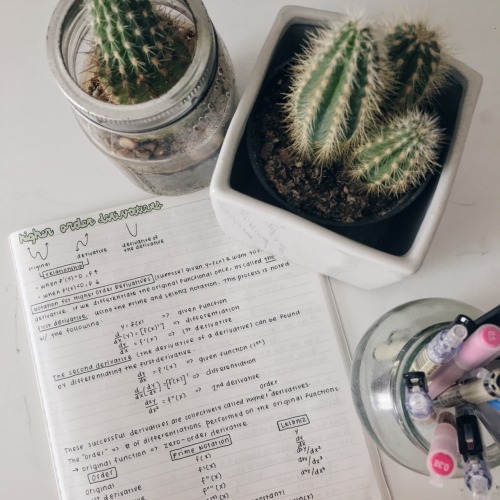 higher order derivatives
original derivative derivative of the derivative
relationship
- when f'(x)>0, f↑
- when f'(x)<0, f↓
Notation for Higher Order Derivatives: (suppose) given y=f(x) & want its
derivative. If we differentiate the original function once, its called the
1st derivative, using the prime and Leibniz notation. This process is noted
w/ the following:
y=f(x) => given function
d/dx (y) = [f(x)]' => differentiation
dy/dx = f'(x) => 1st derivative
The second derivative (the derivative of a derivative) can be found
by differentiating the 1st derivative
dy/dx = f'(x) => given function (1st)
d/dx (dy/dx) = [f'(x)]' => differentiation
d²y/dx² = f"(x) => 2nd derivative
These successful derivatives are collectively called higher order derivatives.
The "order" => # of differentiations performed on the original functions.
→ original function => zero-order derivative
Order Prime Notation Leibniz
original f(x) y
1st derivative f'(x) dy/dx
f"(x) d²y/dx²
f'''(x) d³y/dx³
0.38